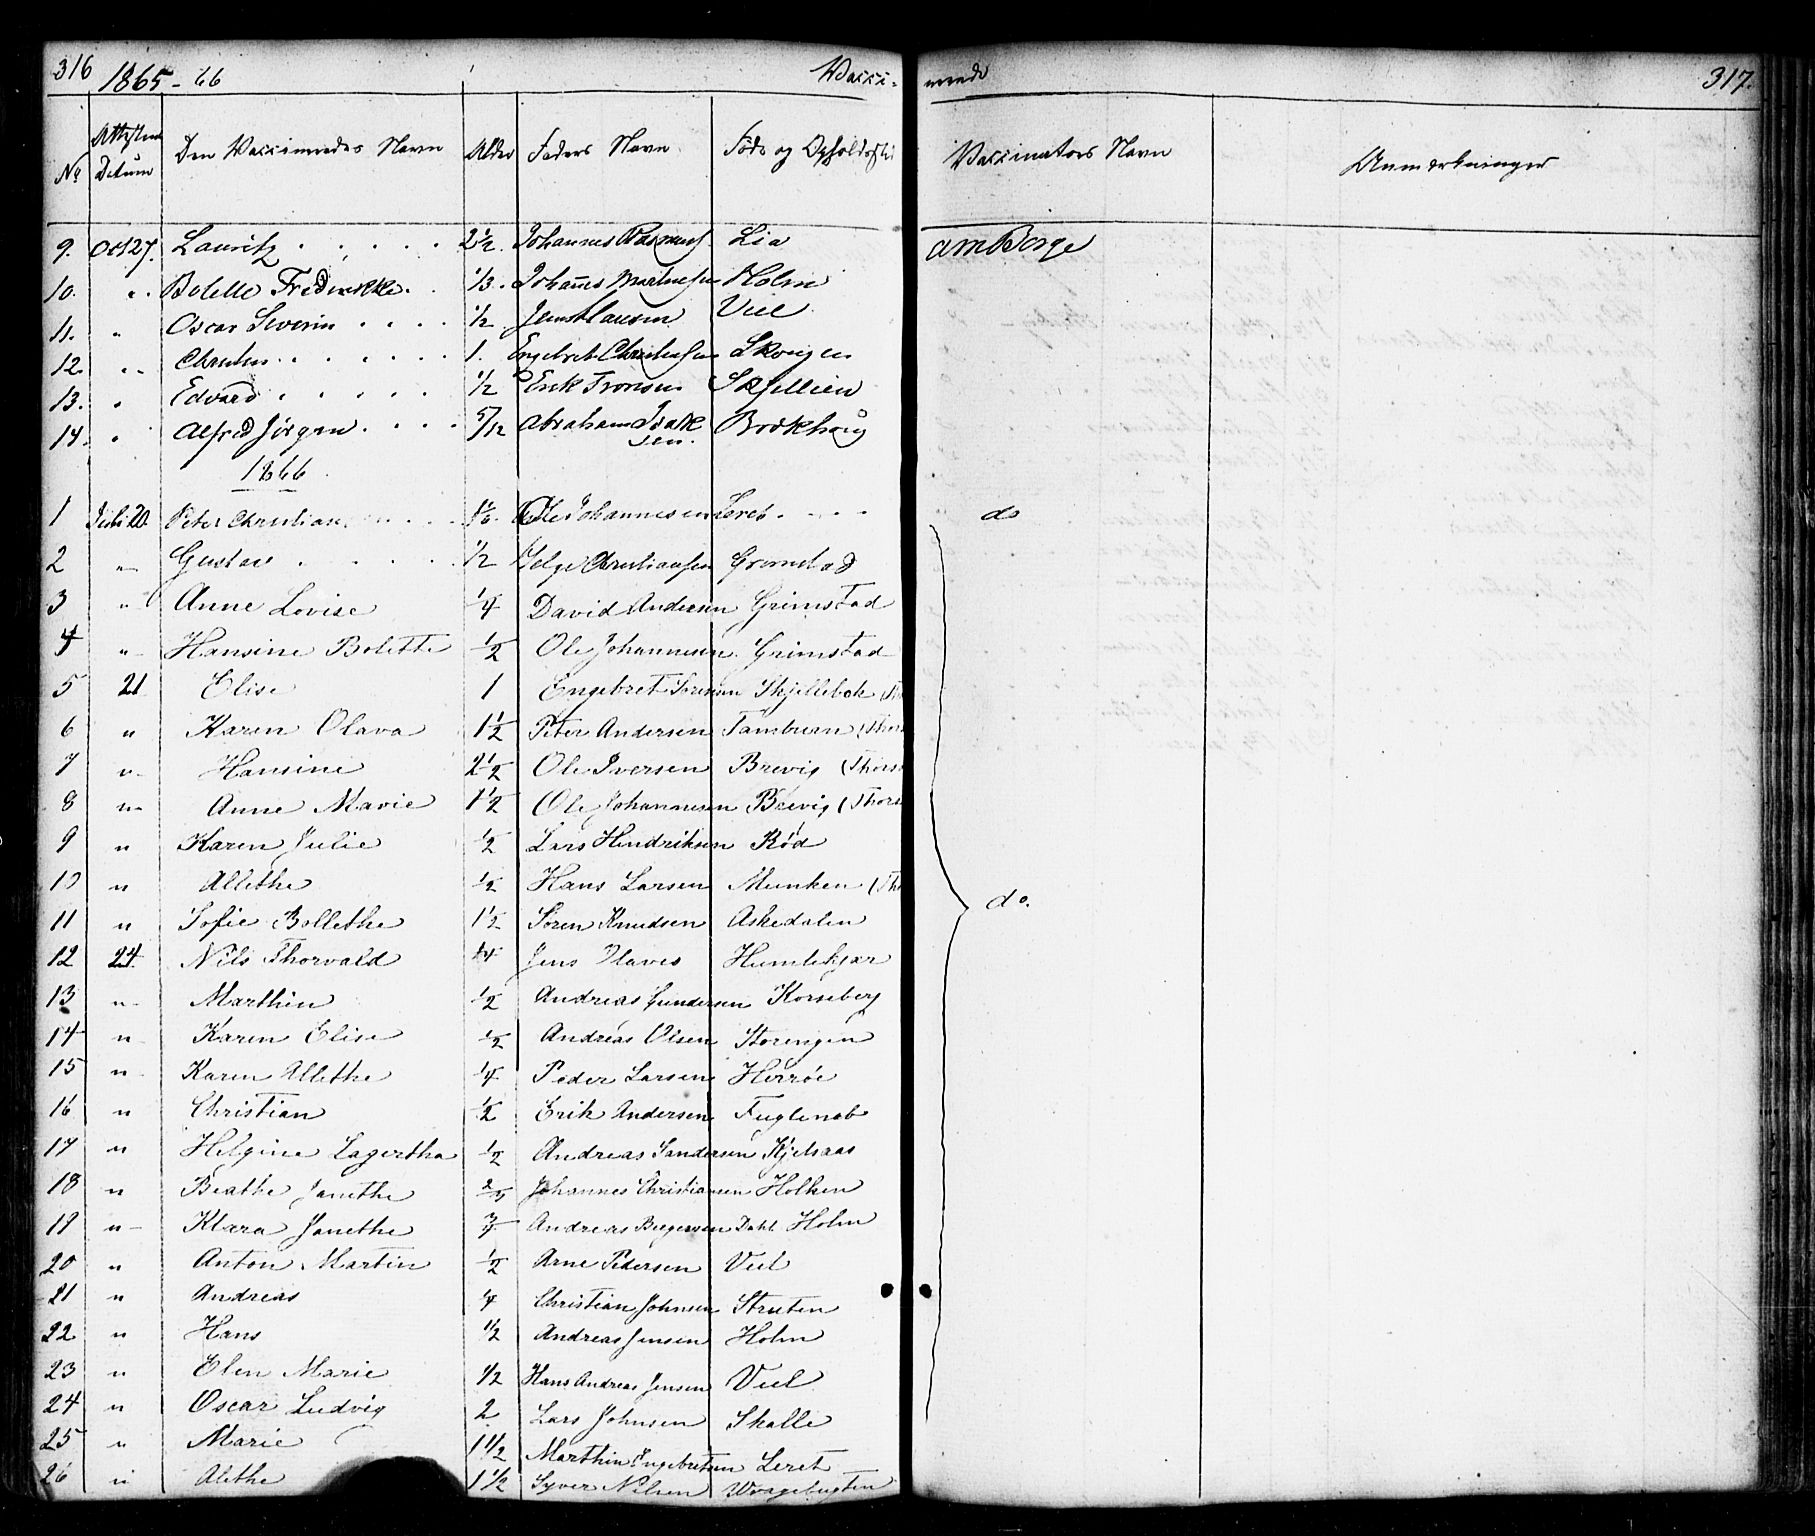 316 1865-66 Vacci-
nerede 317.
No Attestens Datum Den Vaccineredes Navn Alder Faders Navn Føde og Opholdssted Vaccinators Navn Anmærkninger
9. Oct 27. Lauritz 2 1/2. Johannes Lia am Borge
10. " Bolette Fredrikke. 1/3. Johannes Martinsen Holm
11. " Oscar Severin 1/2 Jens Hansen Viel
12. " 1. Engebret Christensen Skongen
13. " Edvard 1/2 Erik Tronsen Skjellien
14. " Alfred Jørgen 5/12 Abraham Isaksen. Brækhoug
1866.
1 Juli 20 Peter Christian Ole Johannesen Leret do
2 " Gustav 1/2 Helge Christiansen Grimstad
3 " Anne Lovise 1/4 David Andersen Grimstad
4 " Hansine Bolette 1/2 Ole Johannesen Grimstad
5 21 Elise 1 Engebret Sørensen Skjellebek
6 " Karen Olava 1 1/2 Peter Andersen Tamburn (Thors
7 " Hansine 2 1/2 Ole Iversen Brevig (Thors
8 " Anne Marie 1 1/2 Ole Johannesen Brevig (Thors
9 " Karen Julie 1/2 Lars Hendriksen Rød
10 " Allethe 1/2 Hans Larsen Munken (Tho
11 " Sofie Bollethe 1 1/2 Søren Knudsen Askedalen do.
12 24 Nils Thorvald 1/4 Jens Olaves Humlekjær
13 " Marthin 1/2 Andreas Gundersen Korseberg
14 " Karen Elise 1/2 Andreas Olsen Storengen
15 " Karen Allethe 1/4 Peder Larsen Herrøe
16 " Christian 1/2 Erik Andersen Fuglenab
17 " Helgine Lagertha 1/2 Andreas Sandersen Kjelsaas
18 " Beathe Janethe Johannes Christiansen Holken
19 " Klara Janethe Andreas Birgersen Dahl Holm
20 " Anton Martin 1/2 Arne Pedersen Viel
21 " Andreas 1/4 Christian Johnsen Struten
22 " Hans 1/2 Andreas Jensen Holm
23 " Elen Marie 1/2 Hans Andreas Jensen Viel
24 " Oscar Ludvig 2 Lars Johnsen Skalle
25 " Marie 1 1/2 Marthin Engebretsen Leret
26 " Alethe 1 1/2 Syver Nilsen Wragebugten